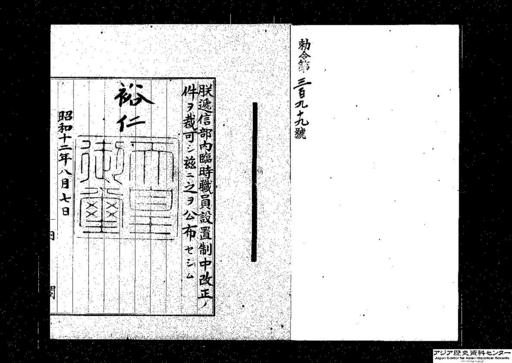 勅令第三百九十九號
朕遞信部內臨時職員設置制中改正ノ
件ヲ裁可シ玆ニ之ヲ公布セシム
裕仁
天皇
御璽
昭和十二年八月七日
内閣
アジア歴史資料センター
Japan Center for Asian Historical Records